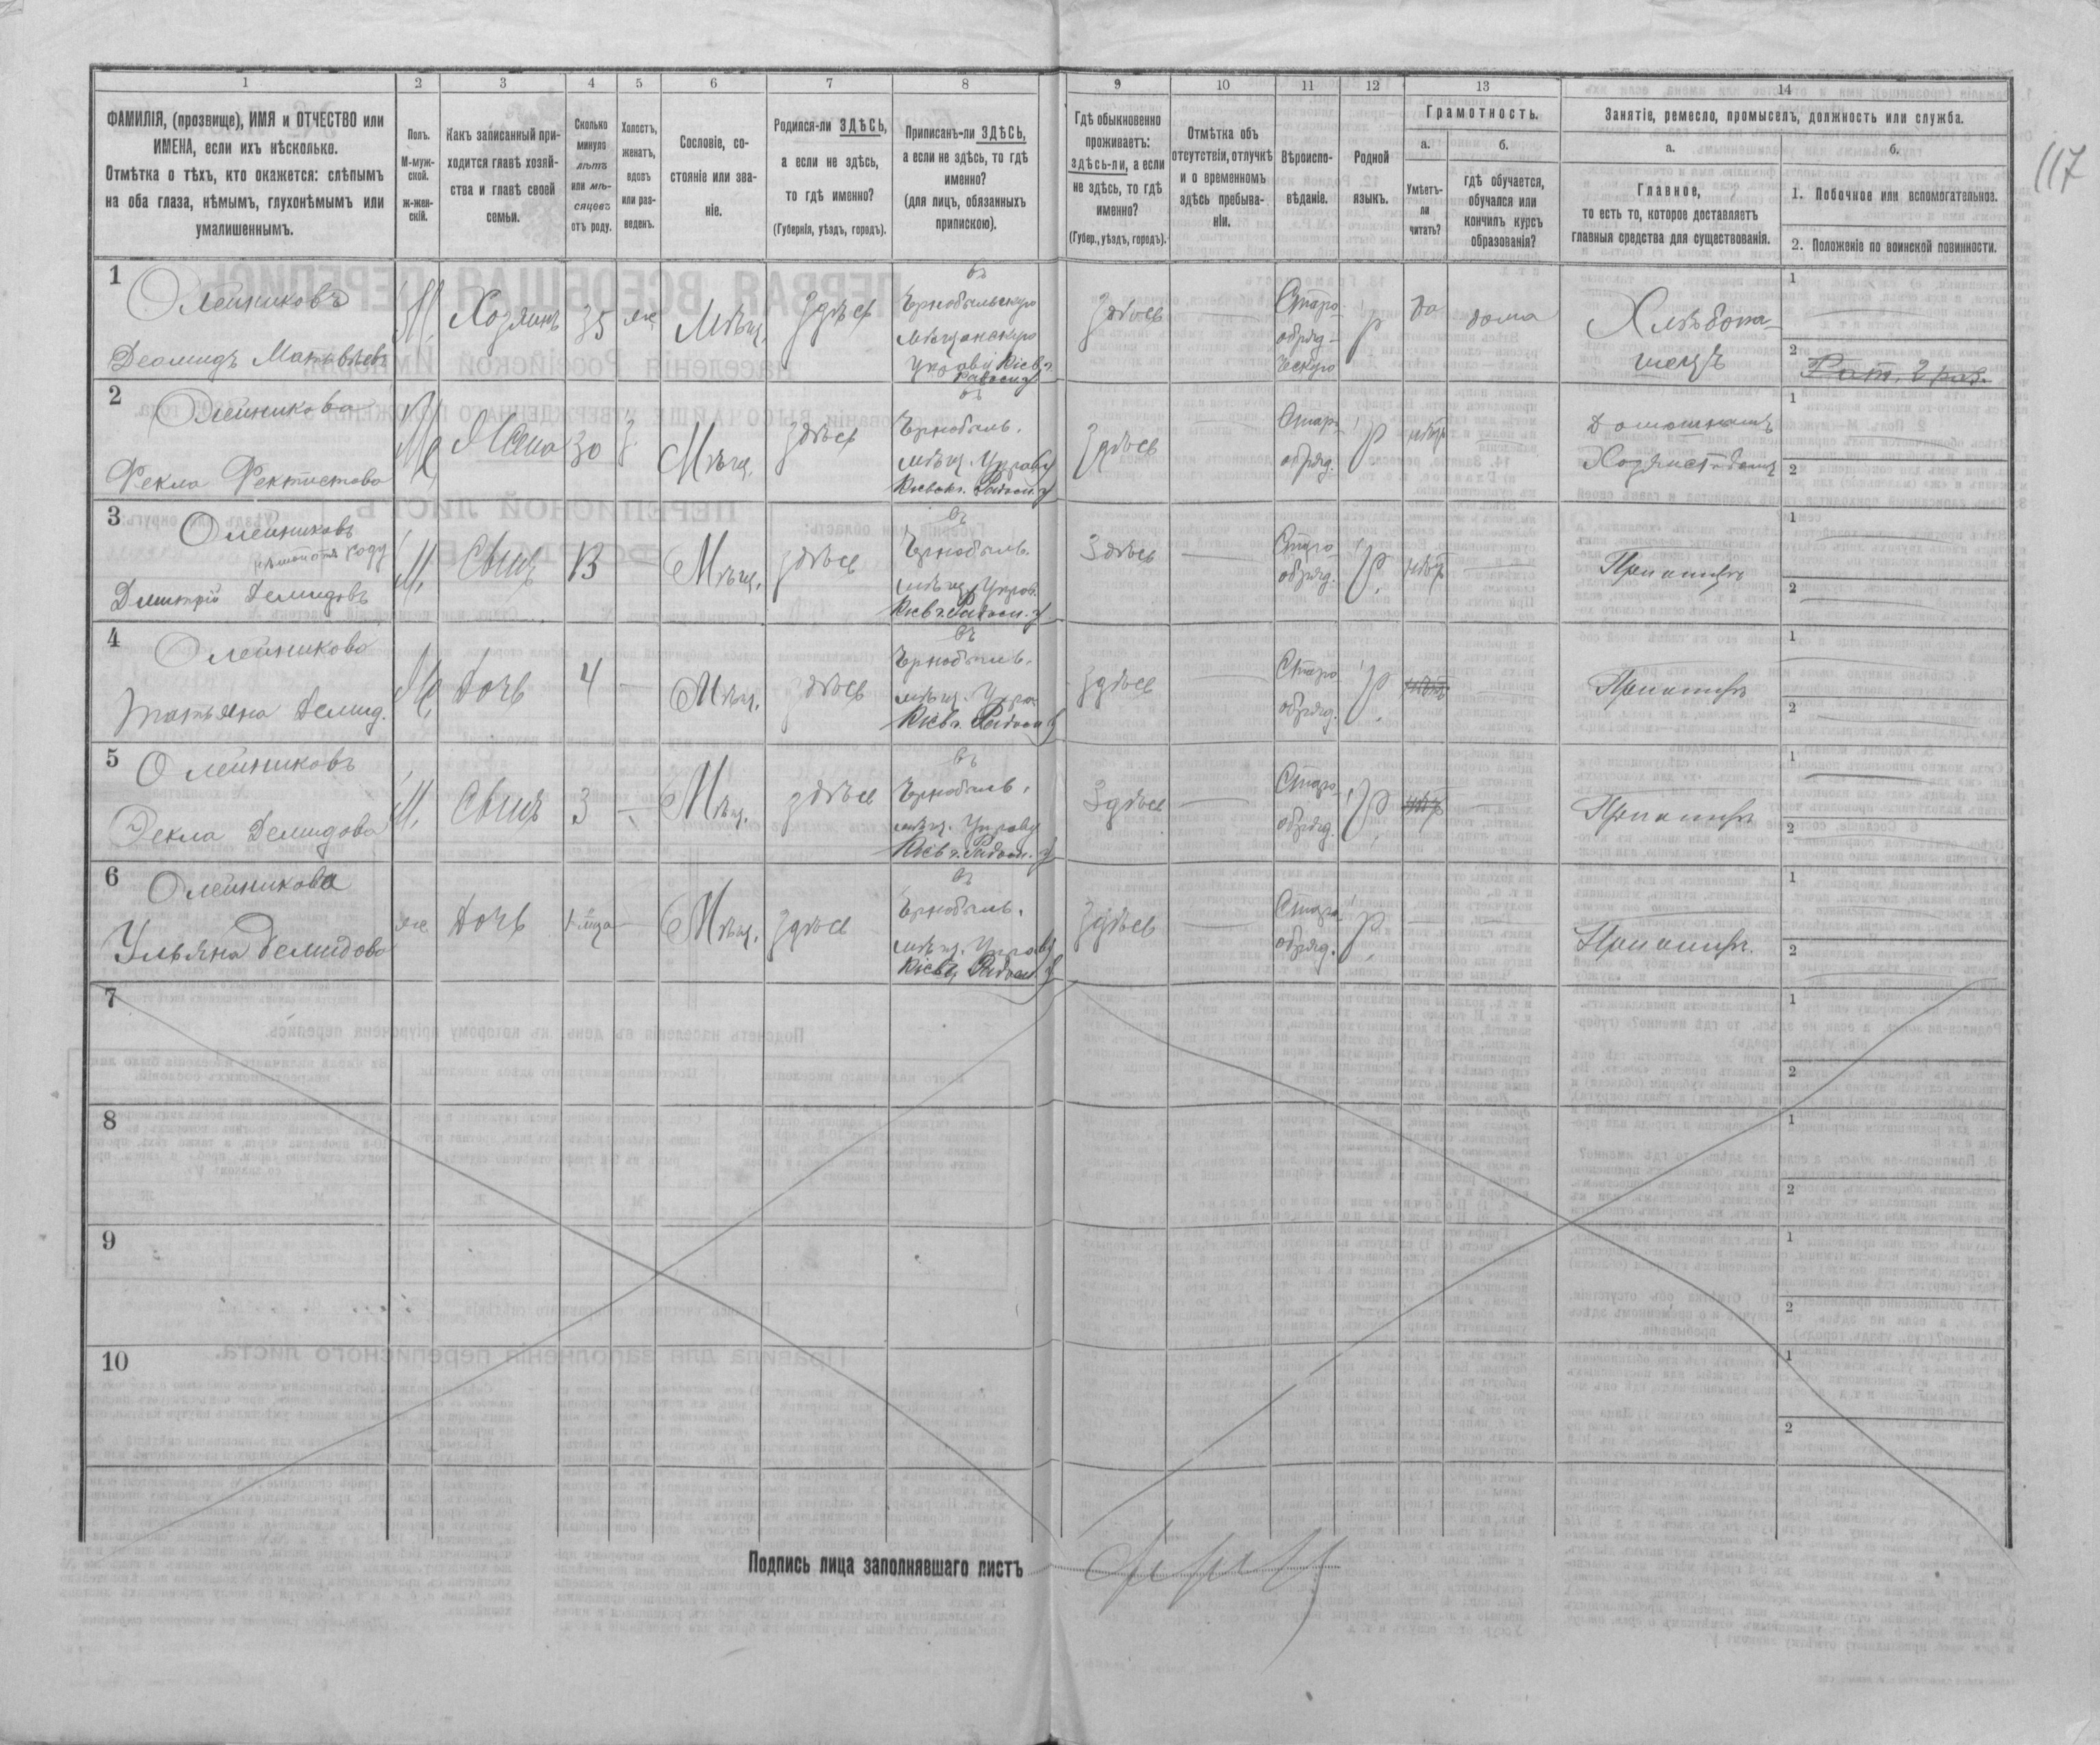 117
1 2 3 4 5 6 7 8 9 10 11 12 13 14
ФАМИЛІЯ, (прозвище), ИМЯ и ОТЧЕСТВО или
ИМЕНА, если ихъ нѣсколько.
Отмѣтка о тѣхъ, кто окажется: слѣпымъ
на оба глаза, нѣмымъ, глухонѣмымъ или
умалишеннымъ.
Полъ.
М-муж-
ской.
ж-жен-
скій.
Какъ записанный при-
ходится главѣ хозяй-
ства и главѣ своей
семьи.
Сколько
минуло
лѣтъ
или мѣ-
сяцевъ
отъ роду.
Холостъ,
женатъ,
вдовъ
или раз-
веденъ.
Сословіе, со-
стояніе или зва-
ніе.
Родился-ли ЗДѢСЬ,
а если не здѣсь,
то гдѣ именно?
(Губернія, уѣздъ, городъ).
Приписанъ-ли ЗДѢСЬ,
а если не здѣсь, то гдѣ
именно?
(для лицъ, обязанныхъ
припискою).
Гдѣ обыкновенно
проживаетъ:
здѣсь-ли, а если
не здѣсь, то гдѣ
именно?
(Губер., уѣздъ, городъ).
Отмѣтка объ
отсутствіи, отлучкѣ
и о временномъ
здѣсь пребыва-
ніи.
Вѣроиспо-
вѣданіе.
Родной
языкъ.
Грамотность.
а.
Умѣетъ-
ли
читать?
б.
гдѣ обучается,
обучался или
кончилъ курсъ
образованія?
Занятіе, ремесло, промыселъ, должность или служба.
а.
Главное,
то есть то, которое доставляетъ
главныя средства для существованія.
б.
1. Побочное или вспомогательное.
2. Положеніе по воинской повинности.
1
Олейниковъ
Деомидъ Матвѣевъ
М. Хозяинъ 35 же Мѣщ. Здѣсь
въ
Чернобыльскую
мѣщанскую
Управу Кіев. г.
Радом. у
Здѣсь —
Старо-
обряд-
ческую
р да дома
Хлѣбопа-
шецъ
1
2 Рат. 2 раз.
2
Олейникова
Фекла Фектистова
Ж Жена 30 з. Мѣщ. здѣсь
въ
Чернобыль.
мѣщ. Управу
Кіевск. Радом. у
Здѣсь —
Старо-
обряд.
р нѣтъ —
домашнимъ
Хозяйст.
1
2
3
Олейниковъ
Дмитрій Демидовъ
М. Сынъ 13 — Мѣщ. здѣсь
въ
Чернобыль.
мѣщ. Управ.
Кіев г. Радом. у
Здѣсь —
Старо-
обряд.
р. нѣтъ —
При отцѣ
1
2
4
Олейникова
Татьяна Демид.
Ж, Дочь 4 — Мѣщ. здѣсь
въ
Чернобыль.
мѣщ. Упра.
Кіев г. Радом у
Здѣсь —
Старо
обряд.
р. нѣтъ —
При отцѣ
1
2
5
Олейниковъ
Фекла Демидова
М. Сынъ 3 — Мѣщ. здѣсь
въ
Чернобыль.
мѣщ. Управу
Кіев г. Радом. у
Здѣсь —
Старо-
обряд.
р. нѣтъ —
При отцѣ
1
2
6
Олейникова
Ульяна Демидова
же Дочь — Мѣщ. здѣсь
въ
Чернобыль.
мѣщ. Управу
Кіев г. Радом у
Здѣсь —
Старо-
обряд.
р. — —
При отцѣ.
1
2
7
1
2
8
1
2
9
1
2
10
1
2
Подпись лица заполнявшаго листъ